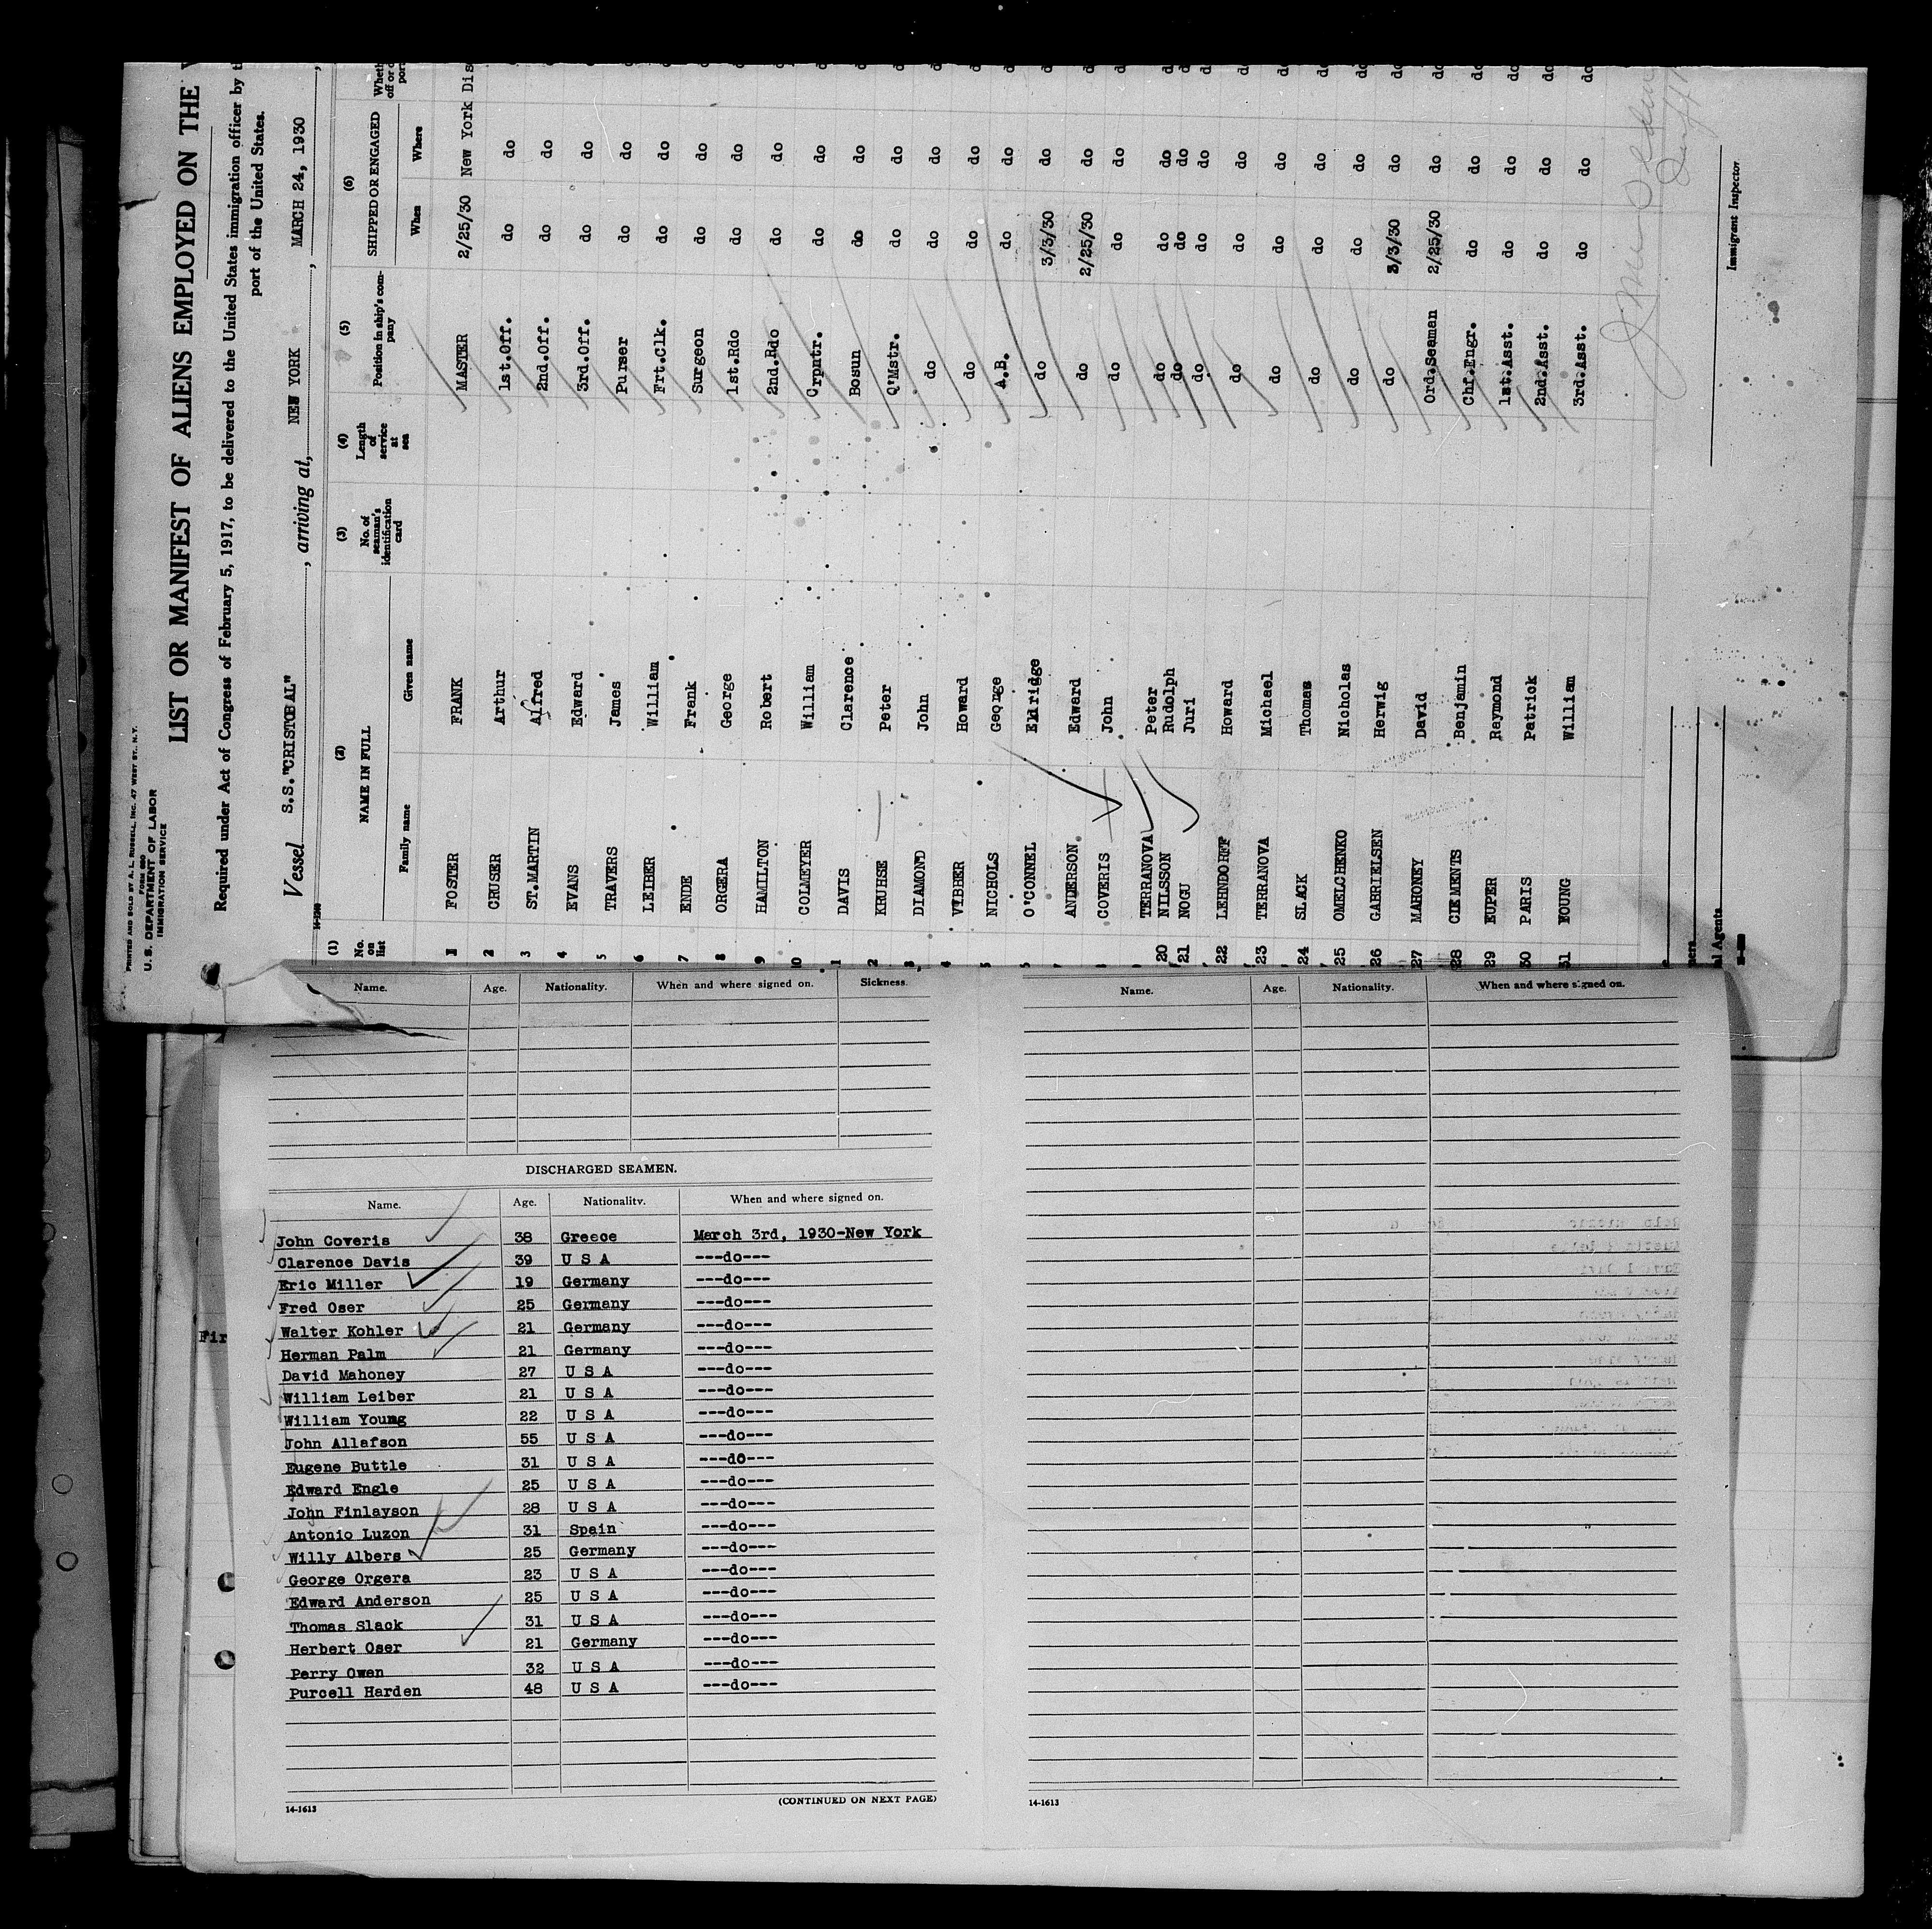 PRINTED AND SOLD BY A. L. RUSSELL, INC. 47 WEST ST., N.Y.
FORM 680
U. S. DEPARTMENT OF LABOR
IMMIGRATION SERVICE
LIST OR MANIFEST OF ALIENS EMPLOYED ON THE
Required under Act of Congress of February 5, 1917, to be delivered to the United States immigration officer by
port of the United States.
Vessel S.S."CRISTOBAL", arriving at, NEW YORK, MARCH 24, 1930,
(1) (2) (3) (4) (5) (6)
No. on list NAME IN FULL No. of seaman's identification card Length of service at sea Position in ship's company SHIPPED OR ENGAGED
Family name Given name When Where
1 FOSTER FRANK MASTER 2/25/30 New York
2 CRUSER Arthur 1st.Off. do do do
3 ST.MARTIN Alfred 2nd.Off. do do do
4 EVANS Edward 3rd.Off. do do do
5 TRAVERS James Purser do do do
6 LEIBER William Frt.Clk. do do do
7 ENDE Frank Surgeon do do do
8 ORGERA George 1st.Rdo do do do
9 HAMILTON Robert 2nd.Rdo do do do
10 COLMEYER William C'rpntr. do do do
1 DAVIS Clarence Bosun do do do
2 KRUHSE Peter Q'Mstr. do do do
3 DIAMOND John do do do do
4 VIBBER Howard do do do do
5 NICHOLS George A.B. do do do
O'CONNEL Eldridge do 3/3/30 do do
ANDERSON Edward do 2/25/30 do do
COVERIS John do do do do
TERRANOVA Peter do do do do
20 NILSSON Rudolph do do do do
21 NOGU Juri do do do do
22 LEHNDORFF Howard do do do do
23 TERRANOVA Michael do do do do
24 SLACK Thomas do do do do
25 OMELCHENKO Nicholas do do do do
26 GABRIELSEN Herwig do 3/3/30 do do
27 MAHONEY David Ord.Seaman 2/25/30 do do
28 CLEMENTS Benjamin Chf.Engr. do do do
29 EUPER Raymond 1st.Asst. do do do
30 PARIS Patrick 2nd.Asst. do do do
31 YOUNG William 3rd.Asst. do do do
Immigrant Inspector
Agents
Name. Age. Nationality. When and where signed on. Sickness.
DISCHARGED SEAMEN.
Name. Age. Nationality. When and where signed on.
John Coveris 38 Greece March 3rd, 1930-New York
Clarence Davis 39 U S A ---do---
Eric Miller 19 Germany ---do---
Fred Oser 25 Germany ---do---
Walter Kohler 21 Germany ---do---
Herman Palm 21 Germany ---do---
David Mahoney 27 U S A ---do---
William Leiber 21 U S A ---do---
William Young 22 U S A ---do---
John Allafson 55 U S A ---do---
Eugene Buttle 31 U S A ---do---
Edward Engle 25 U S A ---do---
John Finlayson 28 U S A ---do---
Antonio Luzon 31 Spain ---do---
Willy Albers 25 Germany ---do---
George Orgera 23 U S A ---do---
Edward Anderson 25 U S A ---do---
Thomas Slack 31 U S A ---do---
Herbert Oser 21 Germany ---do---
Perry Owen 32 U S A ---do---
Purcell Harden 48 U S A ---do---
14-1613 (CONTINUED ON NEXT PAGE)
Name. Age. Nationality. When and where signed on.
14-1613
Fir